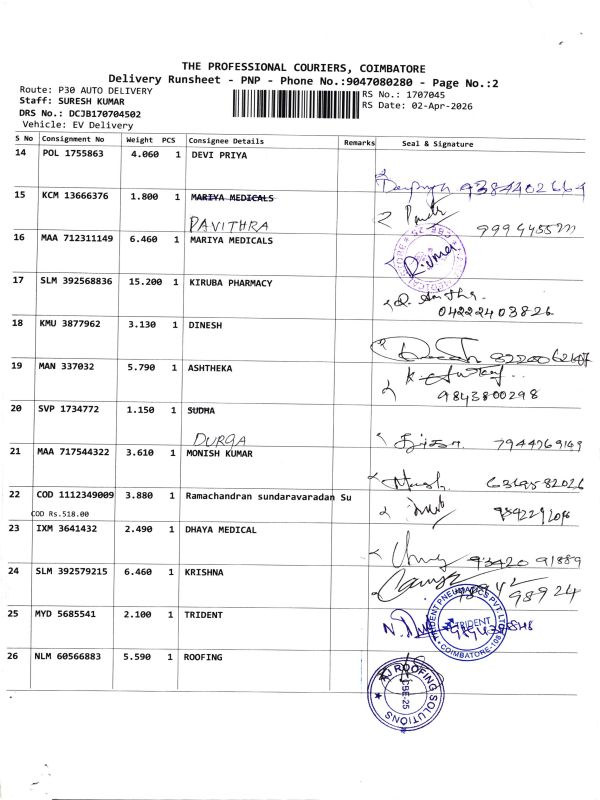 THE PROFESSIONAL COURIERS, COIMBATORE
Delivery Runsheet - PNP - Phone No.:9047080280 - Page No.:2
Route: P30 AUTO DELIVERY
RS No.: 1707045
Staff: SURESH KUMAR
RS Date: 02-Apr-2026
DRS No.: DCJB170704502
Vehicle: EV Delivery
S No Consignment No Weight PCS Consignee Details Remarks Seal & Signature
14 POL 1755863 4.060 1 DEVI PRIYA
9384402664
15 KCM 13666376 1.800 1 MARIYA MEDICALS
PAVITHRA
16 MAA 712311149 6.460 1 MARIYA MEDICALS
17 SLM 392568836 15.200 1 KIRUBA PHARMACY
04222403826
18 KMU 3877962 3.130 1 DINESH
19 MAN 337032 5.790 1 ASHTHEKA
9843800298
20 SVP 1734772 1.150 1 SUDHA
DURGA
21 MAA 717544322 3.610 1 MONISH KUMAR
6369582026
22 COD 1112349009 3.880 1 Ramachandran sundaravaradan Su
COD Rs.518.00
23 IXM 3641432 2.490 1 DHAYA MEDICAL
93420 91889
24 SLM 392579215 6.460 1 KRISHNA
98924
25 MYD 5685541 2.100 1 TRIDENT
TRIDENT PNEUMATICS PVT. LTD.
TRIDENT
COIMBATORE-108
26 NLM 60566883 5.590 1 ROOFING
ROOFING SOLUTIONS
CBE-25